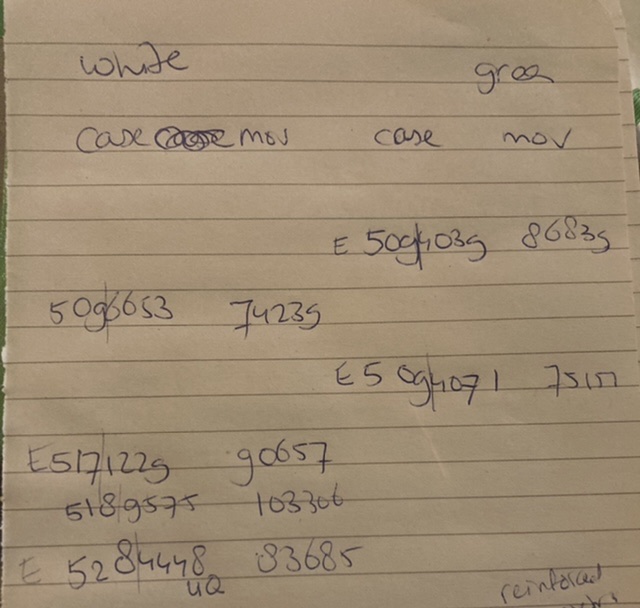 white green
case mov case mov
E 5094039 86839
5096653 74239
E 5094071
E5171229 90657
5189575 103306
E 5284448 83685
reinforced